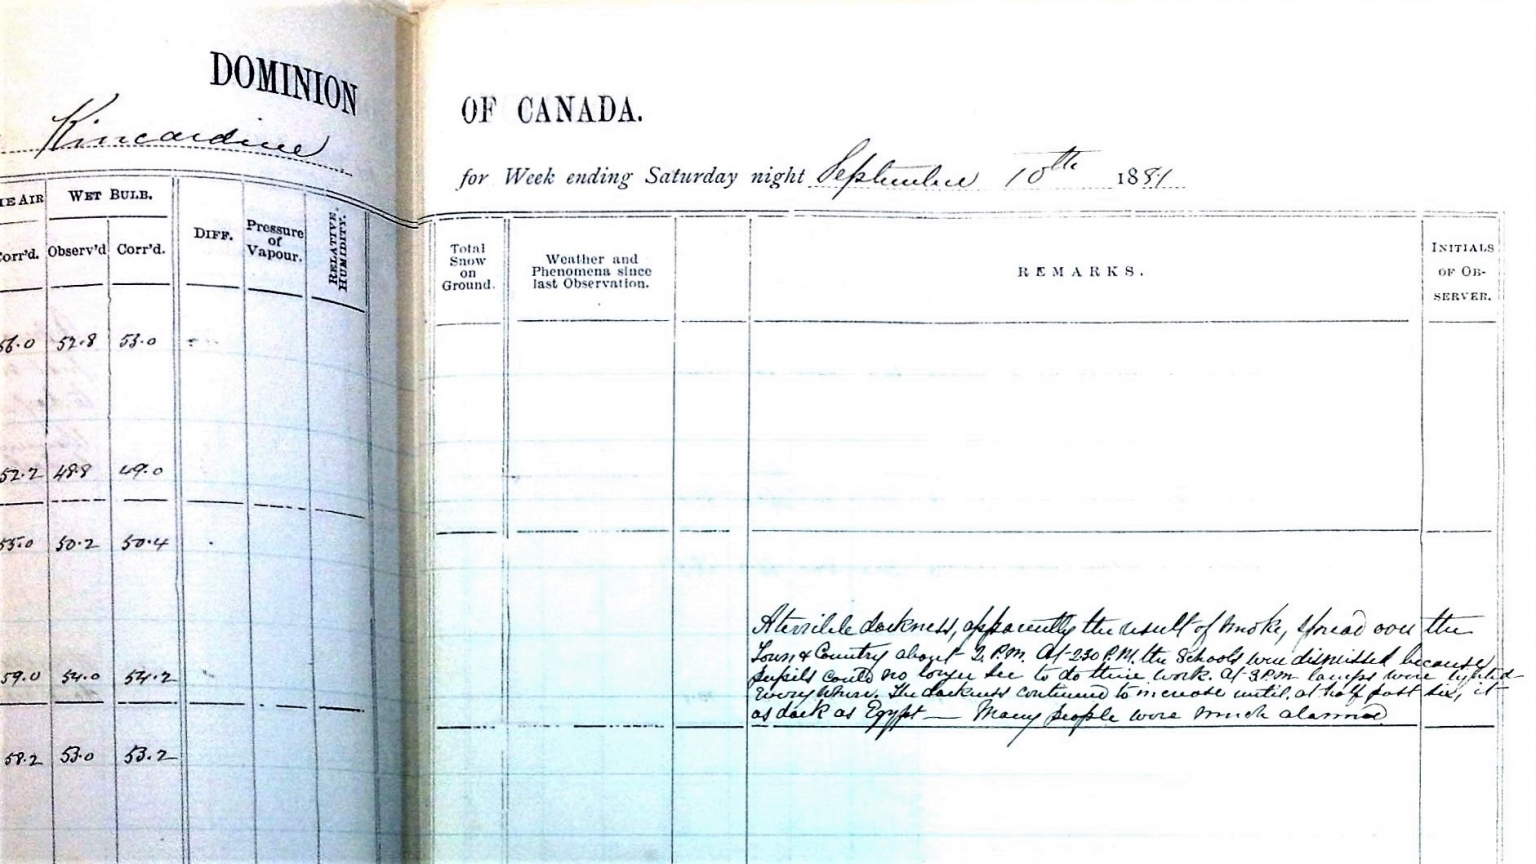 DOMINION OF CANADA.
Kincardine
for Week ending Saturday night September 10th 1881
THE AIR WET BULB.
Corr'd. Observ'd Corr'd. DIFF. Pressure of Vapour. RELATIVE HUMIDITY.
Total Snow on Ground. Weather and Phenomena since last Observation. REMARKS. INITIALS OF OBSERVER.
56.0 52.8 53.0
52.2 48.8 49.0
55.0 50.2 50.4
59.0 54.0 54.2
58.2 53.0 53.2
A terrible darkness, apparently the result of smoke, spread over the
Town & Country about 2 P.M. At 2.30 P.M. the Schools were dismissed because
pupils could no longer see to do their work. At 3 P.M lamps were lighted
everywhere. The darkness continued to increase until, at half past six, it
as dark as Egypt — Many people were much alarmed